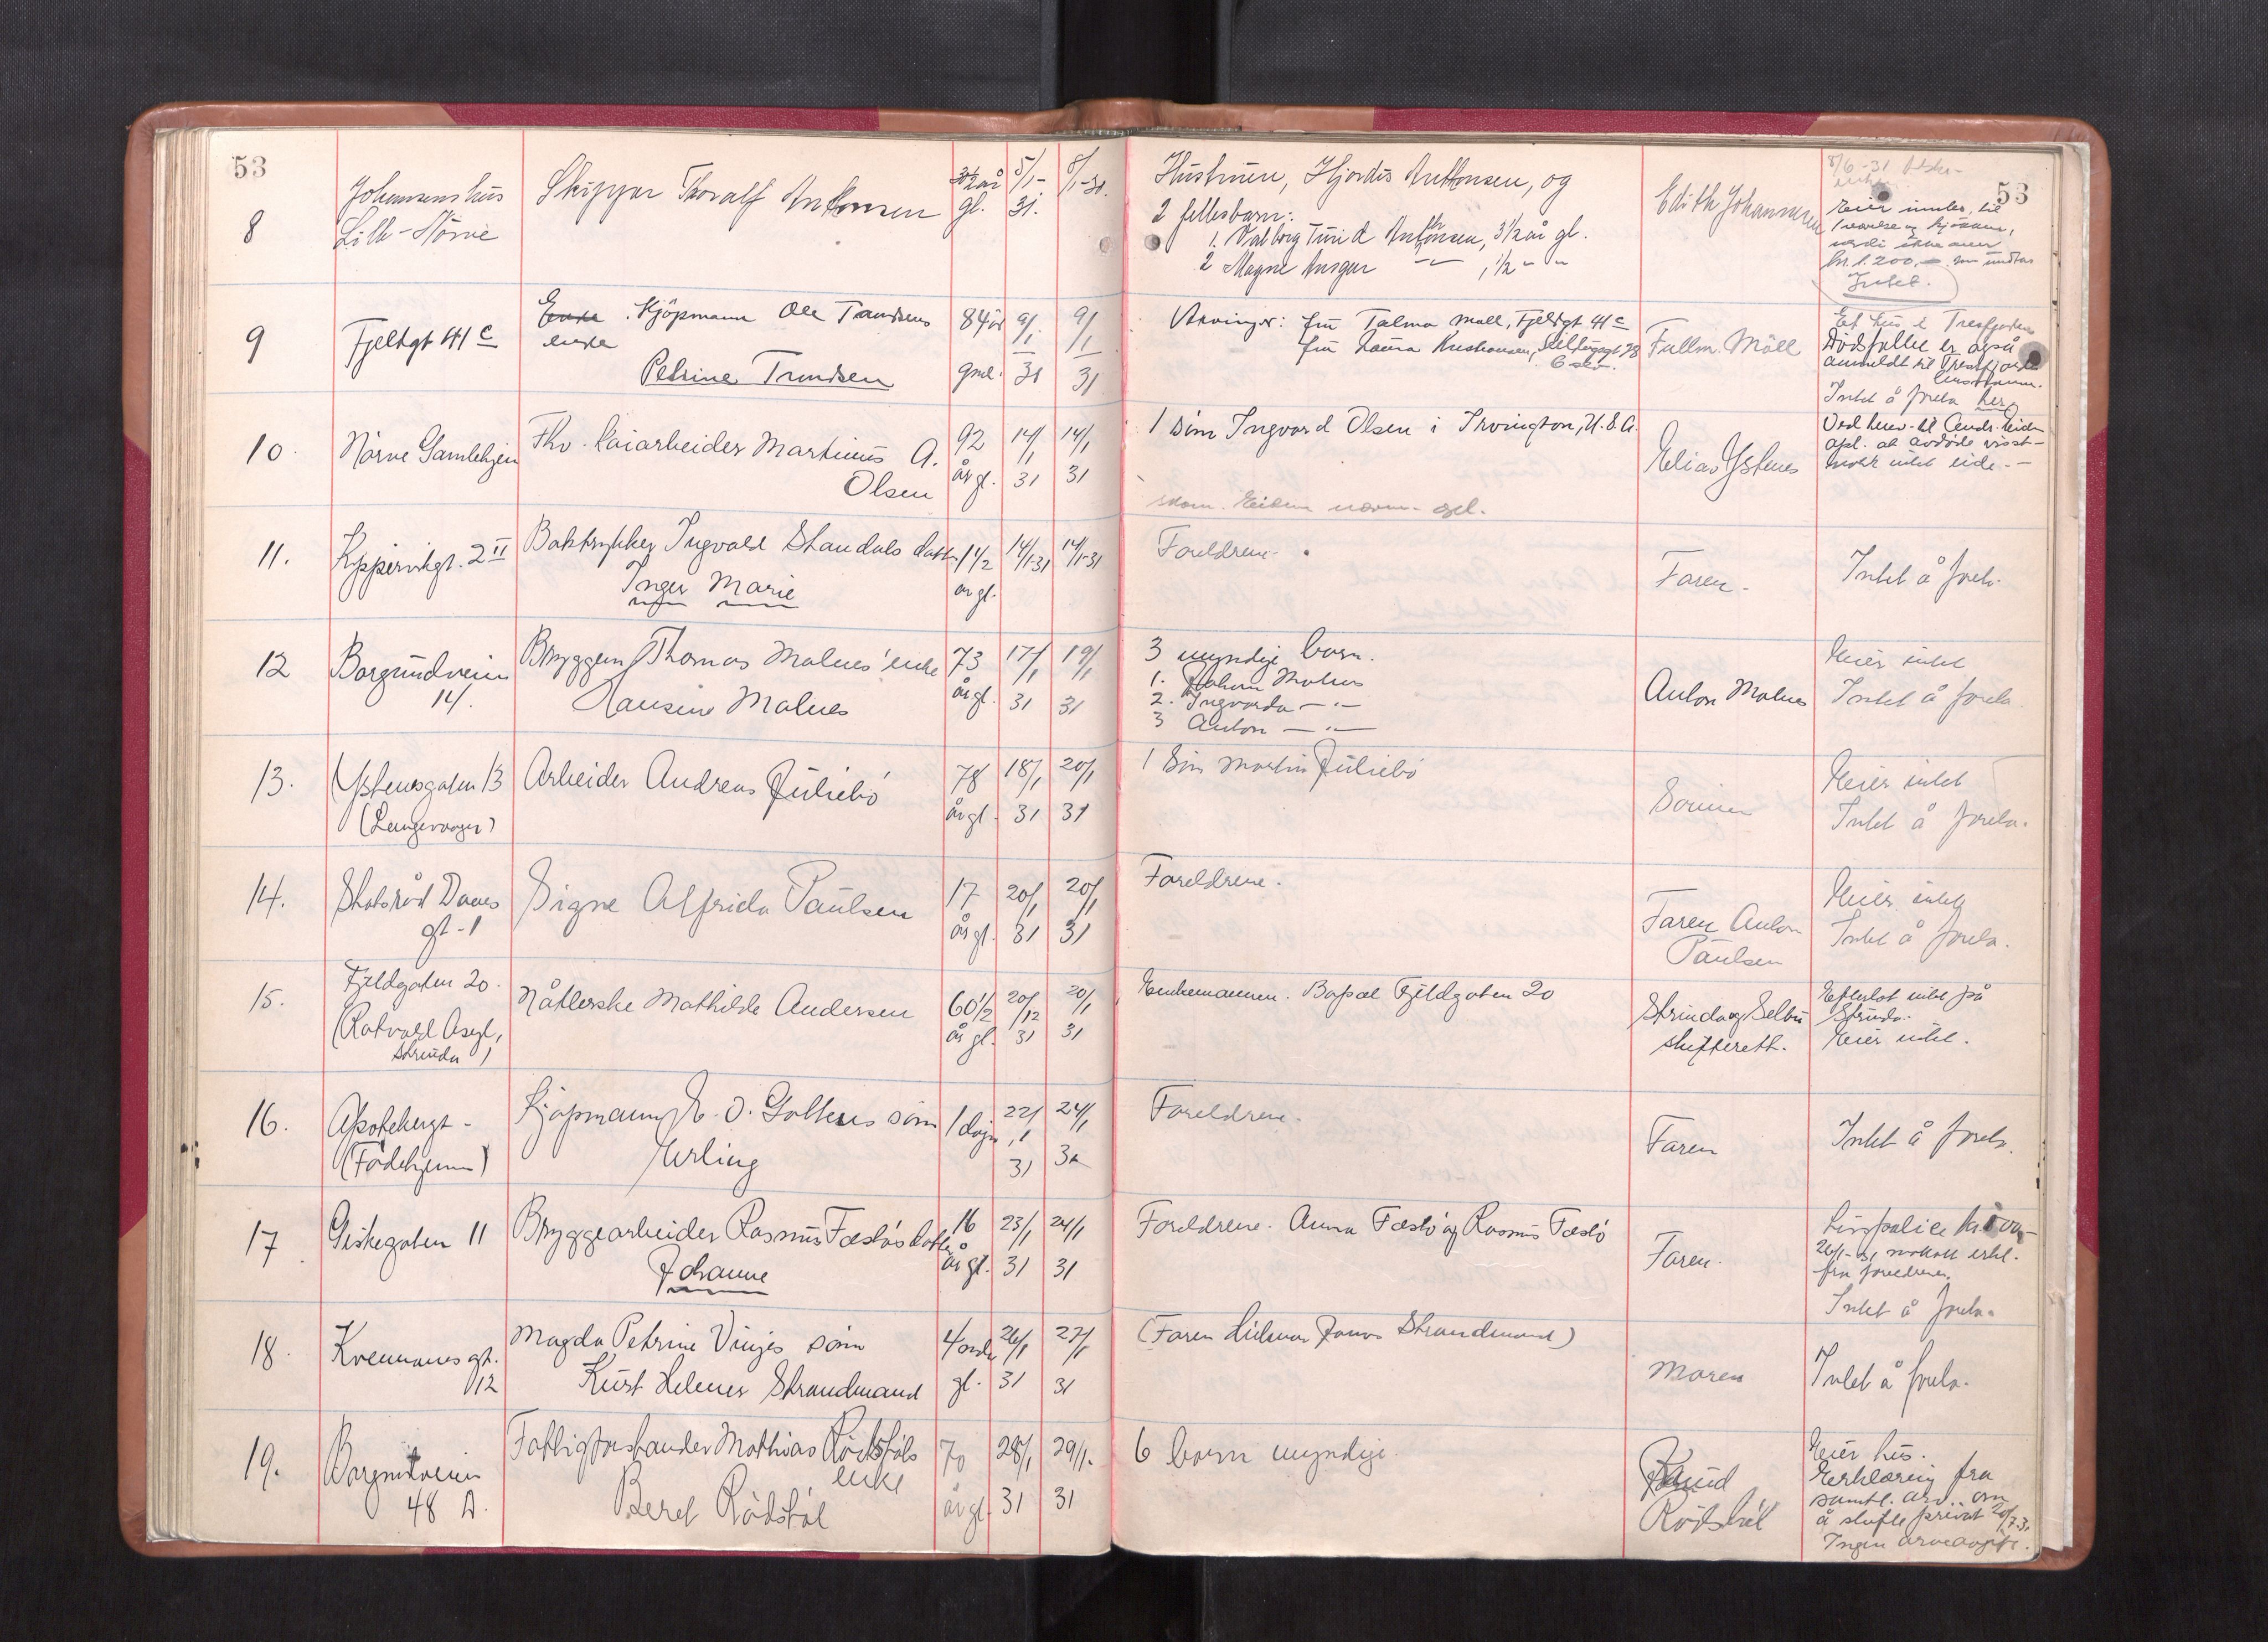 53
8
Johansenshus
Lille-Nörve
Skipper Thoralf Antonsen
32 år
gl.
5/1-
31.
8/1-31.
Hustruen, Hjördis Antonsen, og
2 fellesbarn:
1. Valborg Turid Antonsen, 3½ år gl.
2 Magne Ansgar -"- , ½ " "
Edith Johannesen
53
8/6-31
Eier innbo, til
1 værelse og kjökken,
verdi ikke over
kr. 1.200,-
Intet.
9
Fjeldgt 41 c
Enke Kjöpmann Ole Trondsens
enke
Petrine Trondsen
84 år
gml.
9/1
31
9/1
31
Arvinger: fru Talma Moll, Fjeldgt 41 c
fru Laura Kristiansen,
Oslo.
Fullm. Möll
Et hus i Tresfjorden
Dödsfallet er også
anmeldt til Tresfjorden
lensmann.
Intet å foreta her
10.
Nörve Gamlehjem
Fhv. kaiarbeider Martinus A.
Olsen
92
år gl.
14/1
31
14/1
31
1 sönn Ingvard Olsen i Irvington, U.S.A.
Elias Ystenes
Ved henv. til Andr. Eiden
opl. at avdöde visst-
nok intet eide.-
11.
Kippervikgt. 2 II
Boktrykker Ingvald Standals datter
Inger Marie
1½
år gl.
14/1-31
14/1-31
Foreldrene.
Faren.
Intet å foreta.
12
Borgundveien
14.
Bryggem. Thomas Malnes' enke
Hansine Malnes
73
år gl.
17/1
31
19/1
31
3 myndige barn.
1. Johan Malnes
2. Ingvarda -"-
3 Anton -"-
Anton Malnes
Eier intet
Intet å foreta.
13.
Ystenesgaten 13
(Langevaagen)
Arbeider Andreas Juliebö
78
år gl.
18/1
31
20/1
31
1 Sön Martin Juliebö
Sönnen
Eier intet
Intet å foreta.
14.
Statsråd Daaes
gt-1
Signe Alfrida Paulsen
17
år gl.
20/1
31
20/1
31
Foreldrene.
Faren Anton
Paulsen
Eier intet
Intet å foreta.
15.
Fjeldgaten 20.
(Rotvold Asyl,
Strinda)
Nåtlerske Mathilde Andersen
60½
år gl.
20/12
31
20/1
31
Enkemannen. Bopæl Fjeldgaten 20
Strinda og Selbu
skifterett.
Efterlot intet på
Strinda.
Eier intet.
16.
Apotekergt-
(Födehjemm)
Kjöpmann K. O. Goltens sönn
Erling
1 dögn
22/1
31
24/1
31
Foreldrene.
Faren
Intet å foreta.
17
Giskegaten 11
Bryggearbeider Rasmus Fæslös datter
Johanne
16
år gl.
23/1
31
24/1
31
Foreldrene. Anna Fæslö og Rasmus Fæslö
Faren.
Livspolice
26/1-31 mottatt erkl.
fra foreldrene.
Intet å foreta.
18.
Kvennanes gt.
12
Magda Petrine Vinjes sönn
Kurt Helmer Strandmand
4 mdr
gl.
26/1
31
27/1
31
(Faren Hilmar Jonas Strandmand)
Moren
Intet å foreta.
19.
Borgundveien
48 A.
Fattigforstander Mathias Rödstöls
enke
Beret Rödstöl
70
år gl.
28/1
31
29/1.
31
6 barn myndige.
Knud
Rödstöl
Eier hus.
Erklæring fra
samtl. arv. om
å skifte privat 20/7-31
Ingen arveavgift.